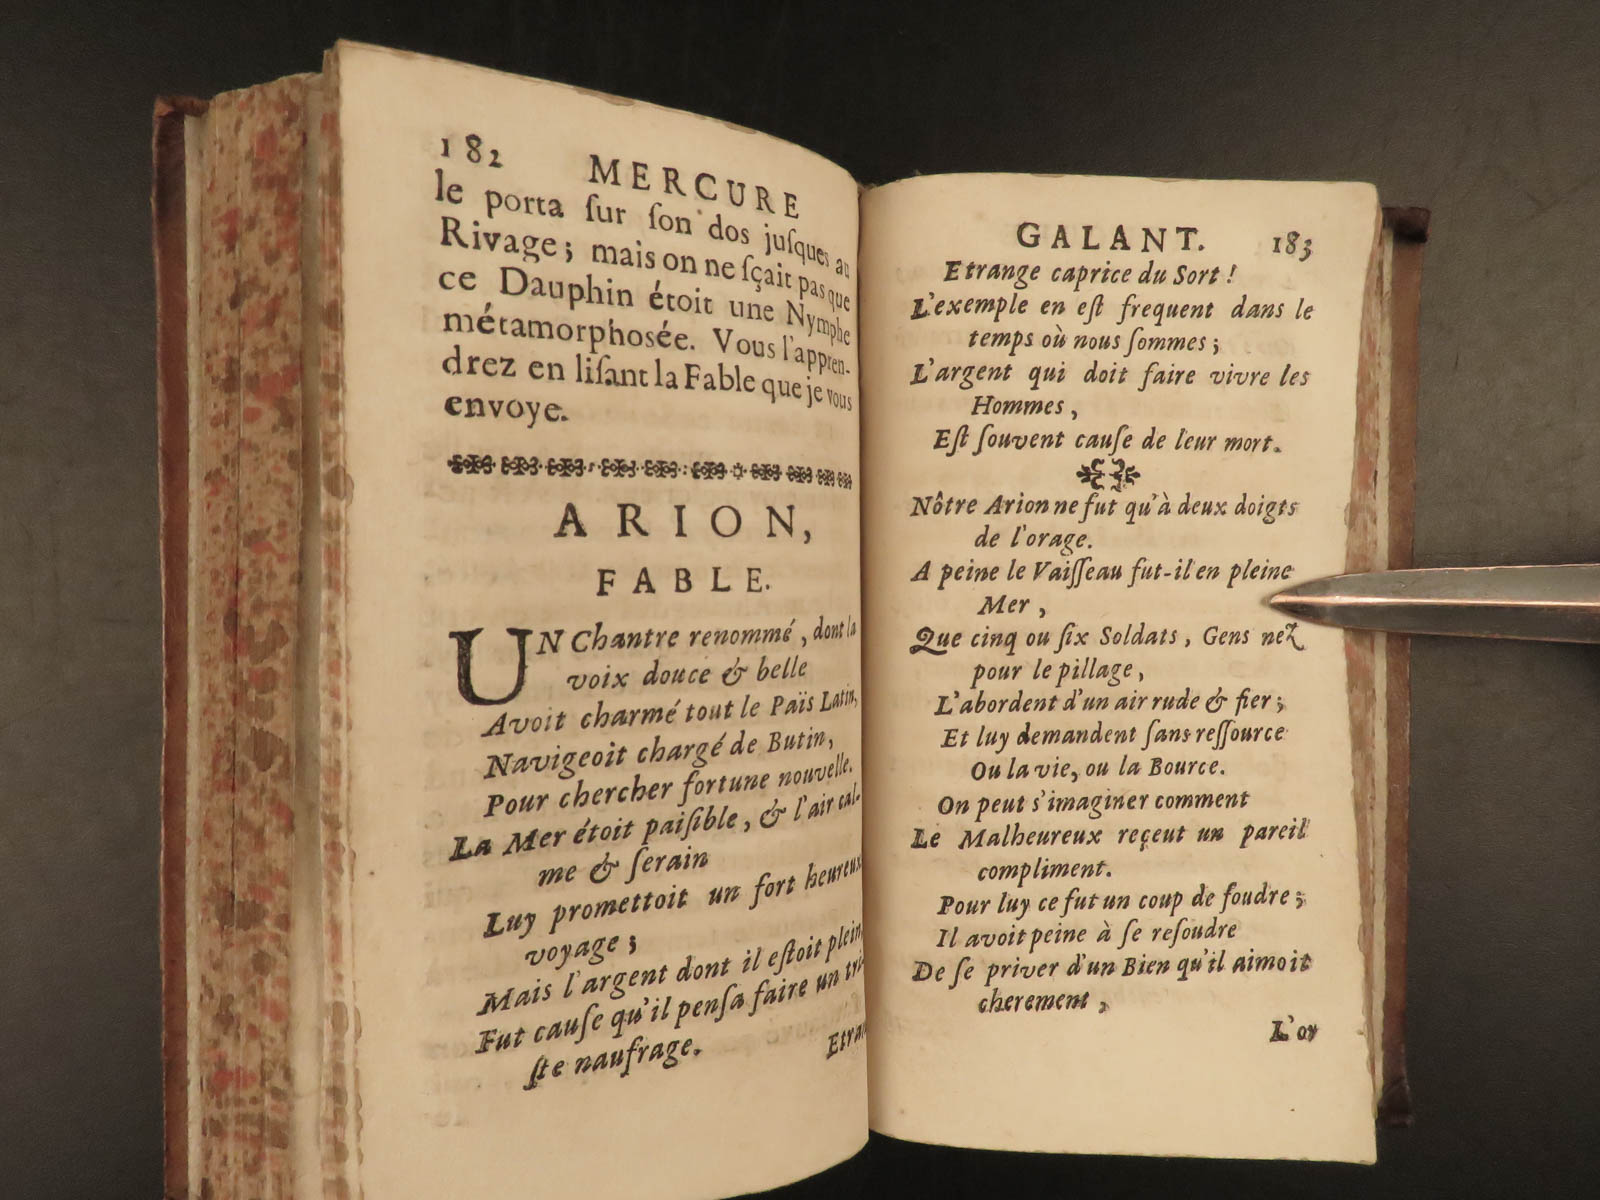 182 MERCURE
le porta ſur ſon dos juſques au
Rivage; mais on ne ſçait pas que
ce Dauphin étoit une Nymphe
métamorphosée. Vous l'appren-
drez en liſant la Fable que je vous
envoye.
ARION,
FABLE.
UN Chantre renommé, dont la
voix douce & belle
Avoit charmé tout le Païs Latin,
Navigeoit chargé de Butin,
Pour chercher fortune nouvelle.
La Mer étoit paiſible, & l'air cal-
me & ſerain
Luy promettoit un fort heureux
voyage;
Mais l'argent dont il eſtoit plein,
Fut cauſe qu'il penſa faire un tri-
ſte naufrage.
Etran
GALANT. 183
Etrange caprice du Sort!
L'exemple en eſt frequent dans le
temps où nous ſommes;
L'argent qui doit faire vivre les
Hommes,
Eſt ſouvent cauſe de leur mort.
Nôtre Arion ne fut qu'à deux doigts
de l'orage.
A peine le Vaiſſeau fut-il en pleine
Mer,
Que cinq ou ſix Soldats, Gens nez
pour le pillage,
L'abordent d'un air rude & fier;
Et luy demandent ſans reſſource
Ou la vie, ou la Bource.
On peut s'imaginer comment
Le Malheureux reçeut un pareil
compliment.
Pour luy ce fut un coup de foudre;
Il avoit peine à ſe reſoudre
De ſe priver d'un Bien qu'il aimoit
cherement,
L'or